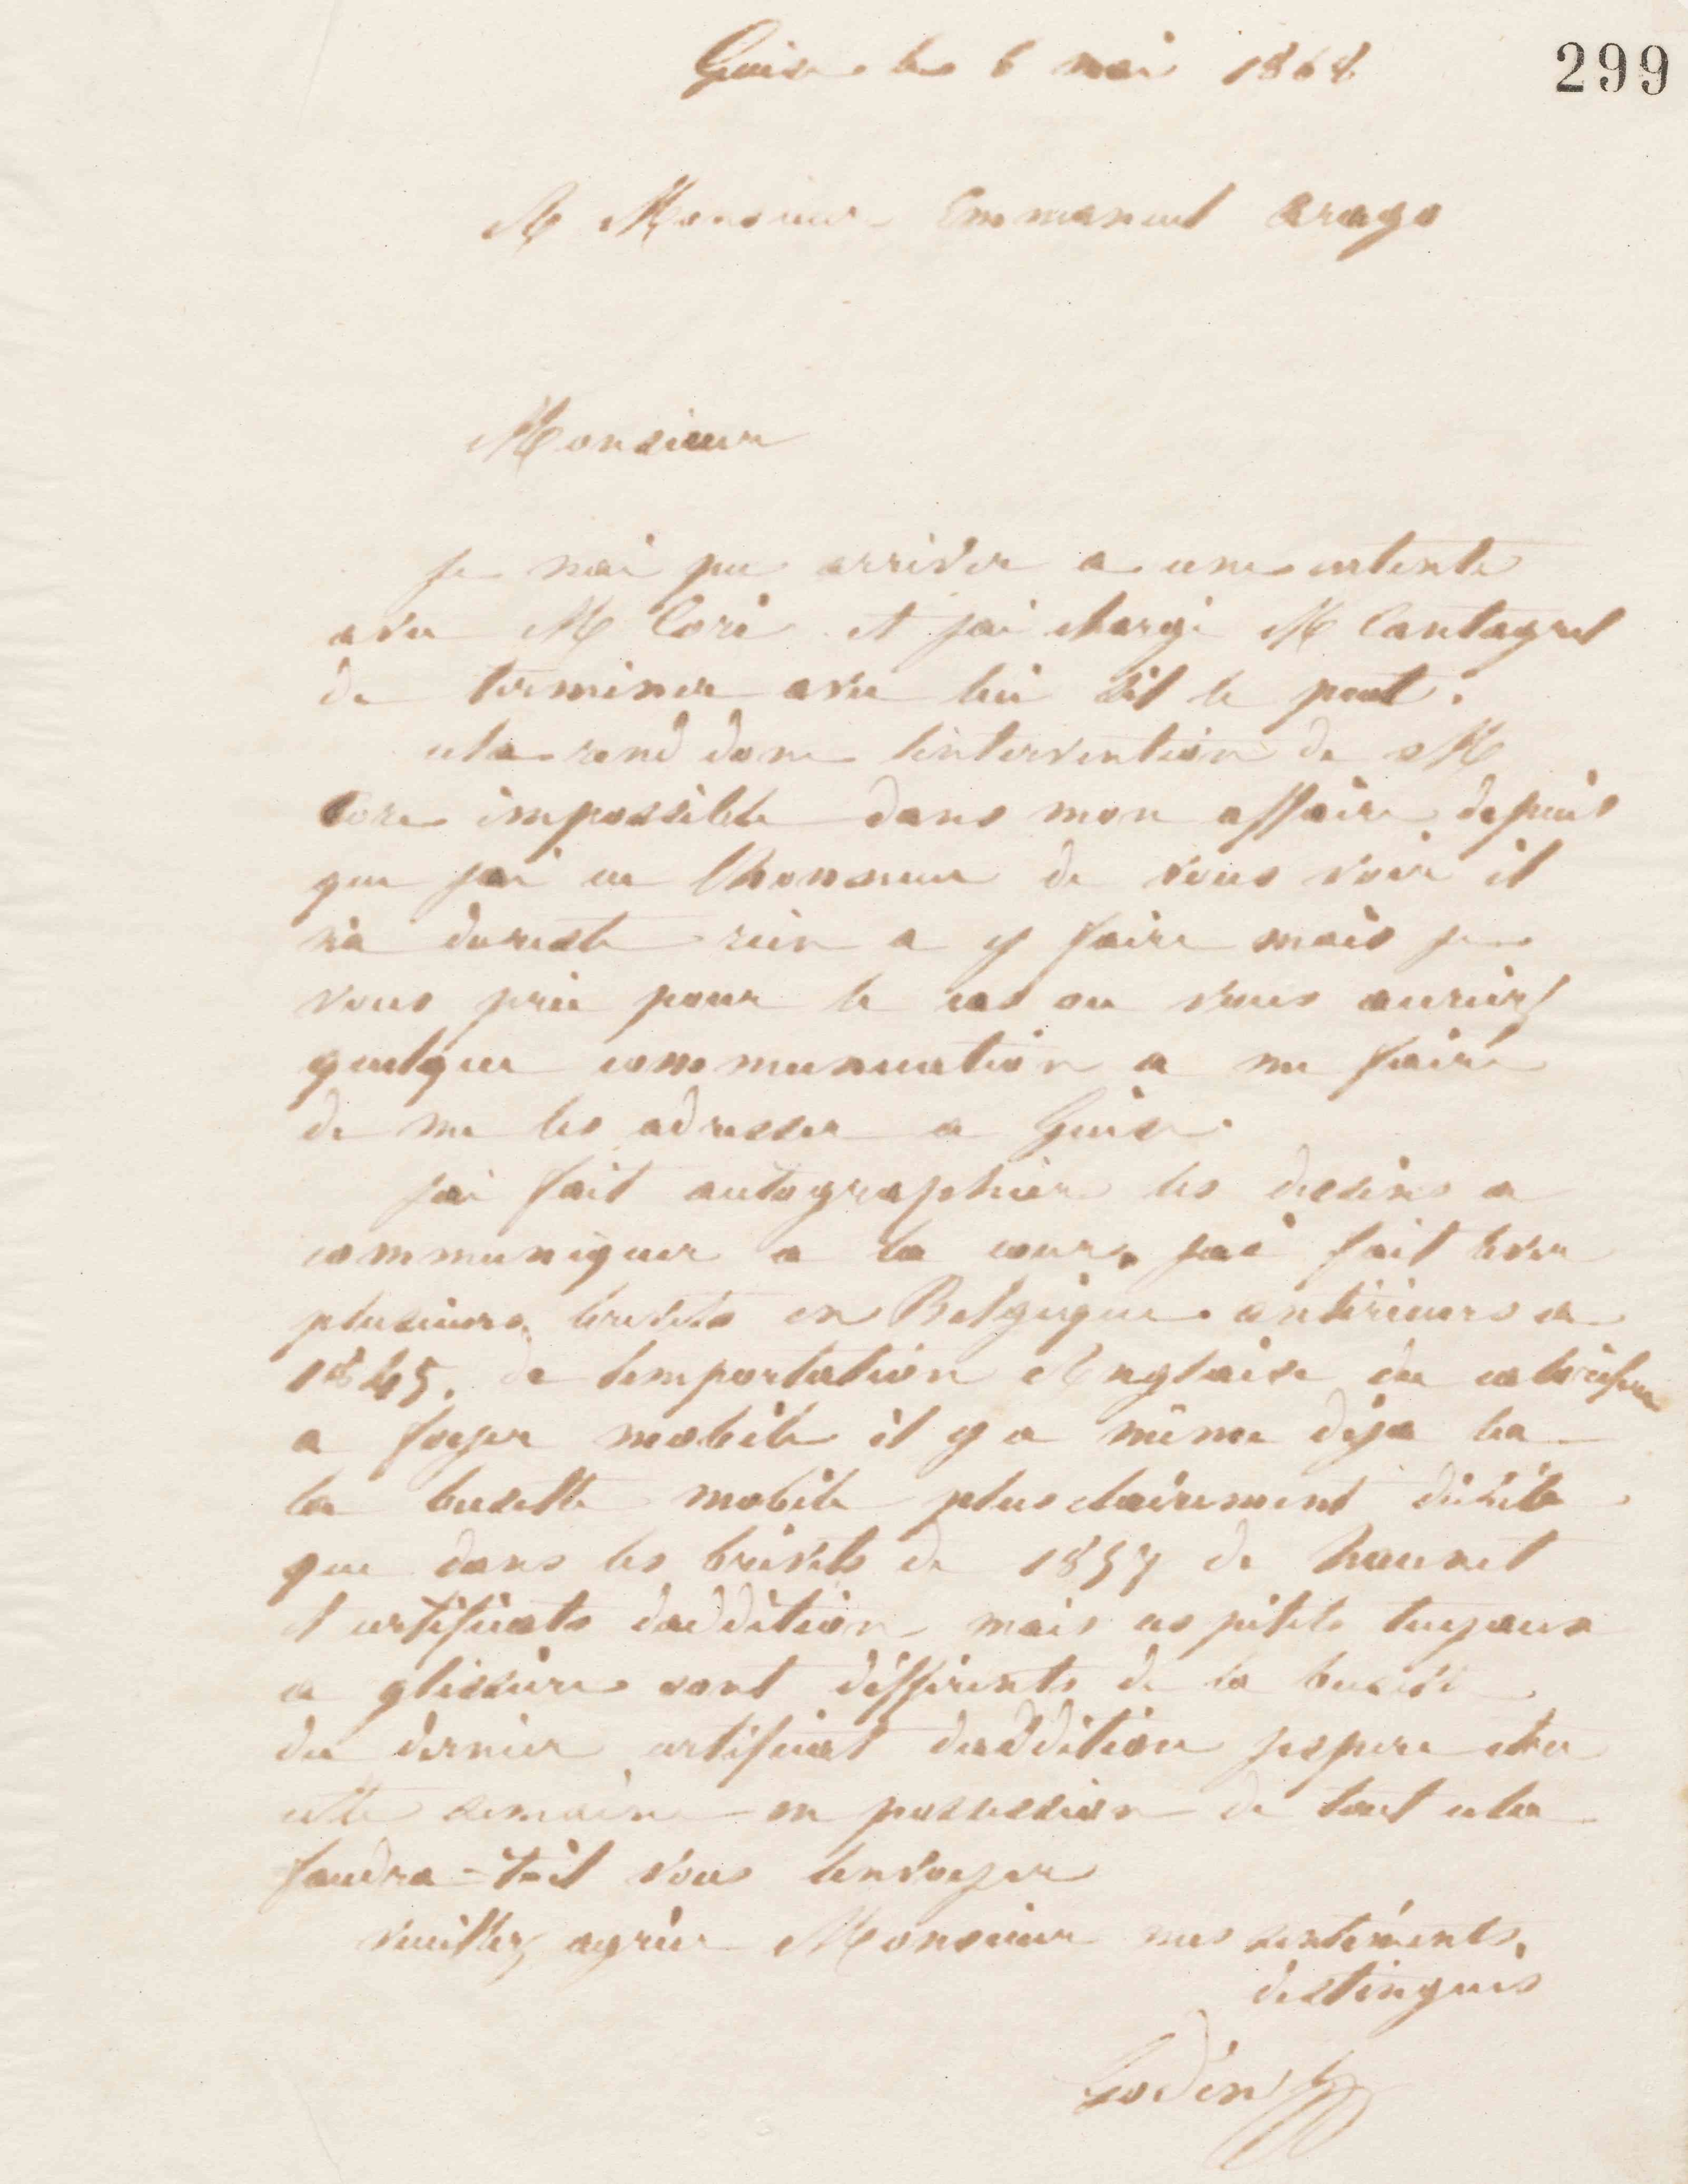 Guise le 6 mai 1868
299
A Monsieur Emmanuel Arago
Monsieur
je nai pu arriver a une entente
avec M Coré et jai chargé M Cantagrel
de terminer avec lui sil le peut.
cela rend donc lintervention de M
Coré impossible dans mon affaire depuis
que jai eu lhonneur de vous voir il
na dureste rien a y faire mais je
vous prie pour le cas ou vous auriez
quelque communication a me faire
de me les adresser a Guise.
jai fait autographier les dessins a
communiquer a la cour, jai fait lever
plusieurs brevets en Belgique anterieurs a
1845. de limportation Anglaise du calorifere
a foyer mobile il y a même déja la
la busette mobile plus clairement décrite
que dans les brévets de 1857 de
et certificats daddition mais ces pétits tuyaux
a glissière sont différents de la busette
du dernier certificat daddition jespere etre
cette semaine en possession de tout cela
faudra-t-il vous lenvoyer
veuillez agréer Monsieur mes sentiments
distingués
Godin